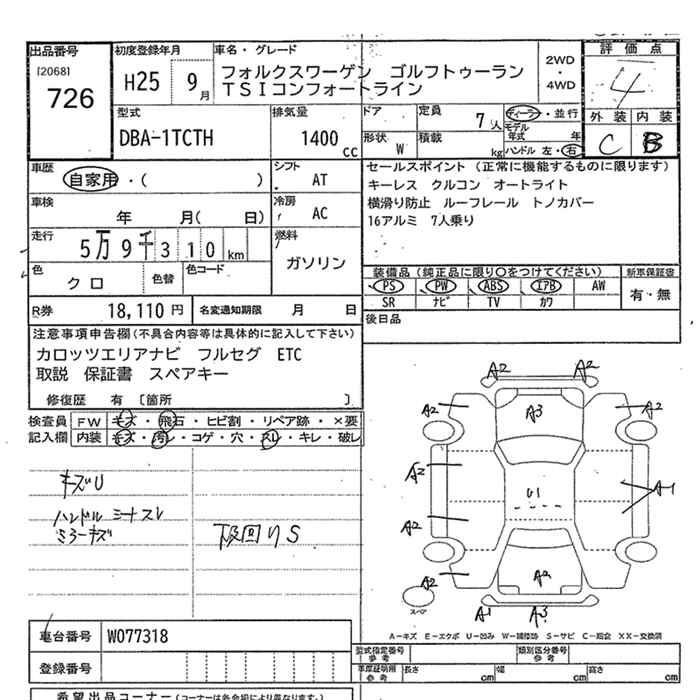 出品番号 初度登録年月 車名・グレード 2WD・4WD 評価点
[2068] 726 H25 9月 フォルクスワーゲン ゴルフトゥーラン
TSIコンフォートライン
4
型式 排気量 ドア 定員 7人 ディーラー・並行 外装 内装
DBA-1TCTH 1400cc 形状 W 積載 kg モデル年式 年 ハンドル 左・右 C B
車歴 自家用・( ) シフト AT
セールスポイント (正常に機能するものに限ります)
キーレス クルコン オートライト
横滑り防止 ルーフレール トノカバー
16アルミ 7人乗り
車検 年 月( 日) 冷房 AC
走行 5万9千310km 燃料 ガソリン
色 クロ 色替 色コード
装備品(純正品に限り〇をつけてください) 新車保証書
PS PW ABS エアB AW 有・無
SR ナビ TV カワ
R券 18,110円 名変通知期限 月 日
後日品
注意事項申告欄(不具合内容等は具体的に記入して下さい)
カロッツエリアナビ フルセグ ETC
取説 保証書 スペアキー
修復歴 有 [箇所 ]
検査員 FW キズ・飛石・ヒビ割・リペア跡・×要
記入欄 内装 キズ・汚レ・コゲ・穴・スレ・キレ・破レ
キズU
ハンドル シートスレ
ミラーキズ
下回りS
A2 A2
A2 A3 A2
A2
U1 A1
A2
A2 A2
スペア A1 A3
A-キズ E-エクボ U-凹み W-補修跡 S-サビ C-腐食 XX-交換済
車台番号 W077318
型式指定番号 参考 類別区分番号 参考
登録番号
車庫証明用 参考 長さ cm 幅 cm 高さ cm
希望出品コーナー